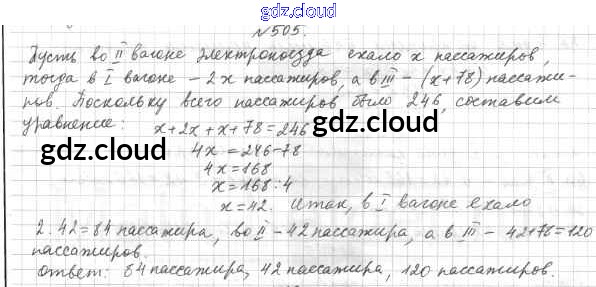 gdz.cloud
№505.
Пусть во II вагоне электропоезда ехало x пассажиров,
тогда в I вагоне - 2x пассажиров, а в III - (x+78) пассажи-
ров. Поскольку всего пассажиров было 246, составим
уравнение: x+2x+x+78=246
gdz.cloud gdz.cloud
4x = 246-78
4x = 168
x = 168:4
x = 42. Итак, в I вагоне ехало
2·42=84 пассажира, во II - 42 пассажира, а в III - 42+78=120
пассажиров.
Ответ: 84 пассажира, 42 пассажира, 120 пассажиров.
gdz.cloud